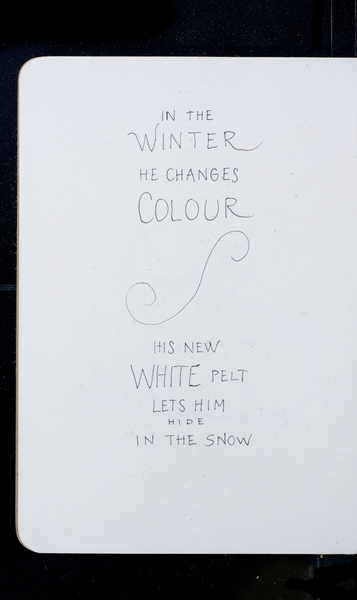 IN THE
WINTER
HE CHANGES
COLOUR
HIS NEW
WHITE PELT
LETS HIM
HIDE
IN THE SNOW